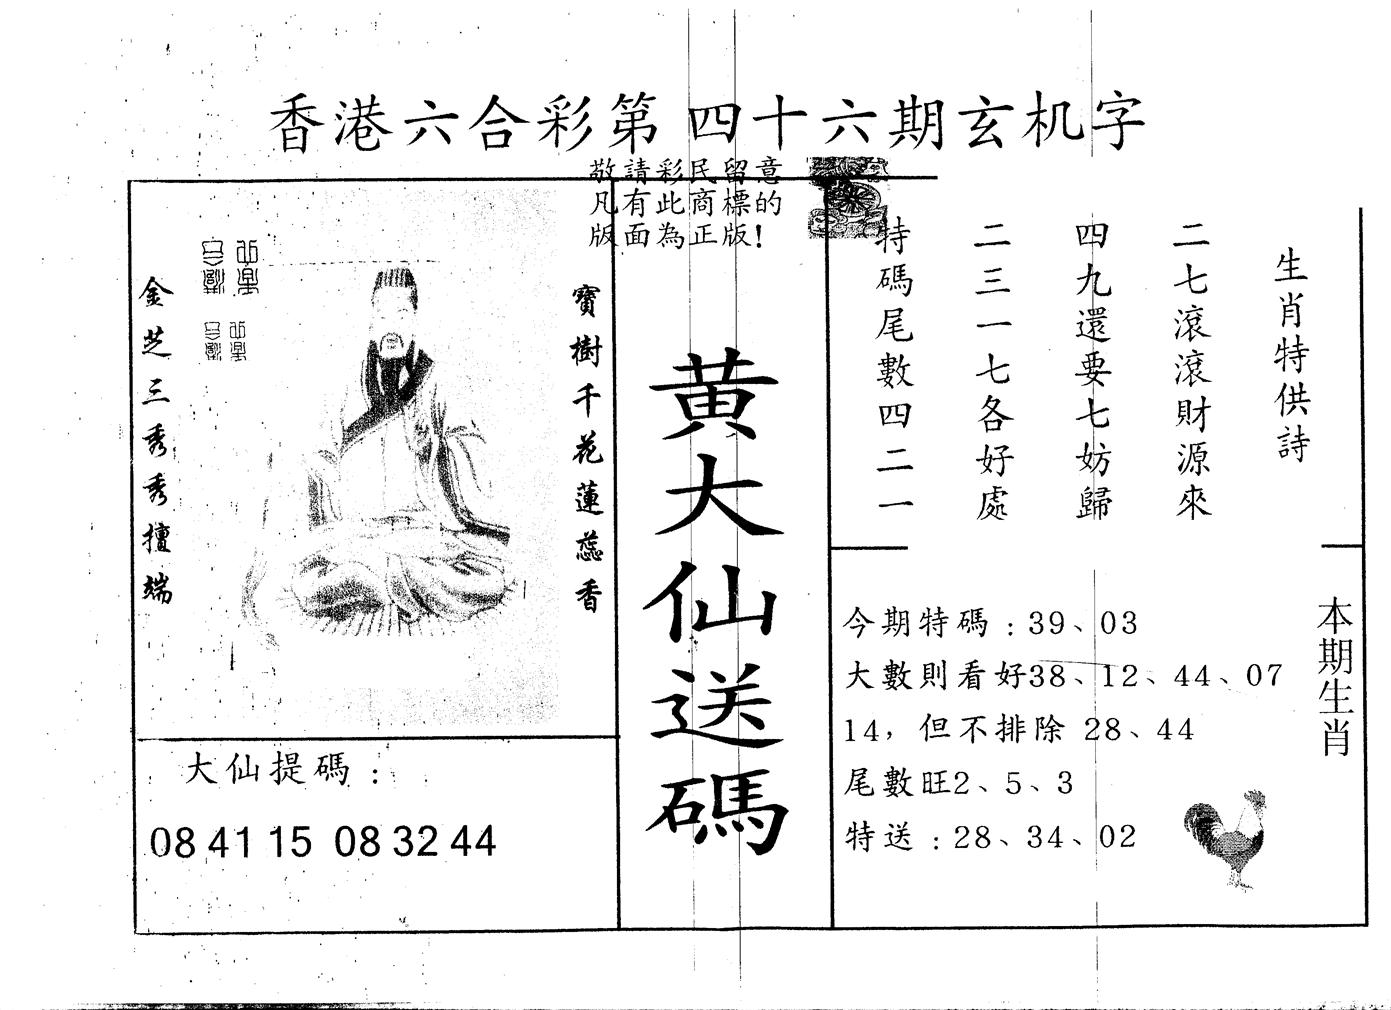 香港六合彩第四十六期玄机字
敬請彩民留意
凡有此商標的
版面為正版!
金芝三秀秀擅端
寶樹千花蓮蕊香
黄大仙送碼
生肖特供詩
二七滾滾財源來
四九還要七妨歸
二三一七各好處
特碼尾數四二一
大仙提碼:
08 41 15 08 32 44
今期特碼:39、03
大數則看好38、12、44、07
14,但不排除 28、44
尾數旺2、5、3
特送:28、34、02
本期生肖